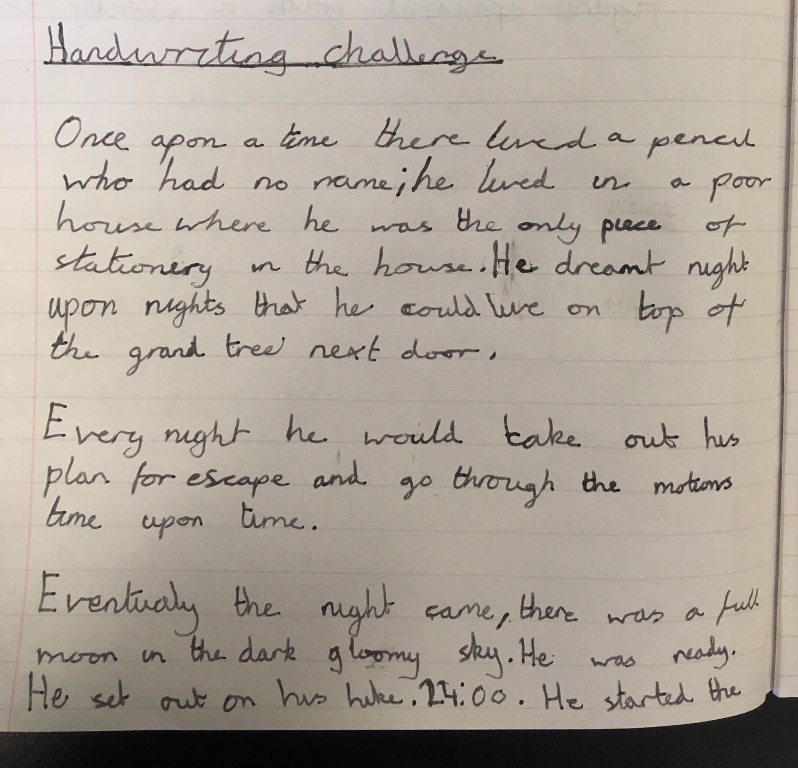 Handwriting challenge
Once apon a time there lived a pencil
who had no name; he lived in a poor
house where he was the only piece of
stationery in the house. He dreamt night
upon nights that he could live on top of
the grand tree next door.
Every night he would take out his
plan for escape and go through the motions
time upon time.
Eventualy the night came, there was a full
moon in the dark gloomy sky. He was ready.
He set out on his hike. 24:00. He started the